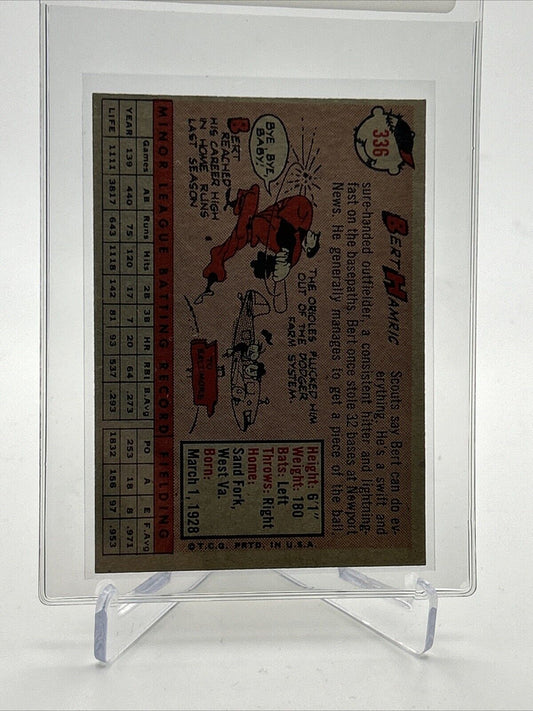 336
BERT HAMRIC
Scouts say Bert can do ev-
erything. He's a swift and
sure-handed outfielder, a consistent hitter and lightning
fast on the basepaths. Bert once stole 32 bases at Newport
News. He generally manages to get a piece of the ball.
BYE, BYE, BABY!
BERT
REACHED
HIS CAREER HIGH
IN HOME RUNS
LAST SEASON
THE ORIOLES PLUCKED HIM
OUT OF THE DODGER
FARM SYSTEM.
TO
BALTIMORE
Height: 6'1"
Weight: 180
Bats: Left
Throws: Right
Home:
Sand Fork,
West Va.
Born:
March 1, 1928
© T.C.G. PRTD. IN U.S.A.
MINOR LEAGUE BATTING RECORD FIELDING
Games AB Runs Hits 2B 3B HR RBI B.Avg PO A E F.Avg
YEAR 139 440 75 120 17 7 20 64 .273 253 18 8 .971
LIFE 1111 3817 643 1118 142 81 93 537 .293 1832 158 97 .953